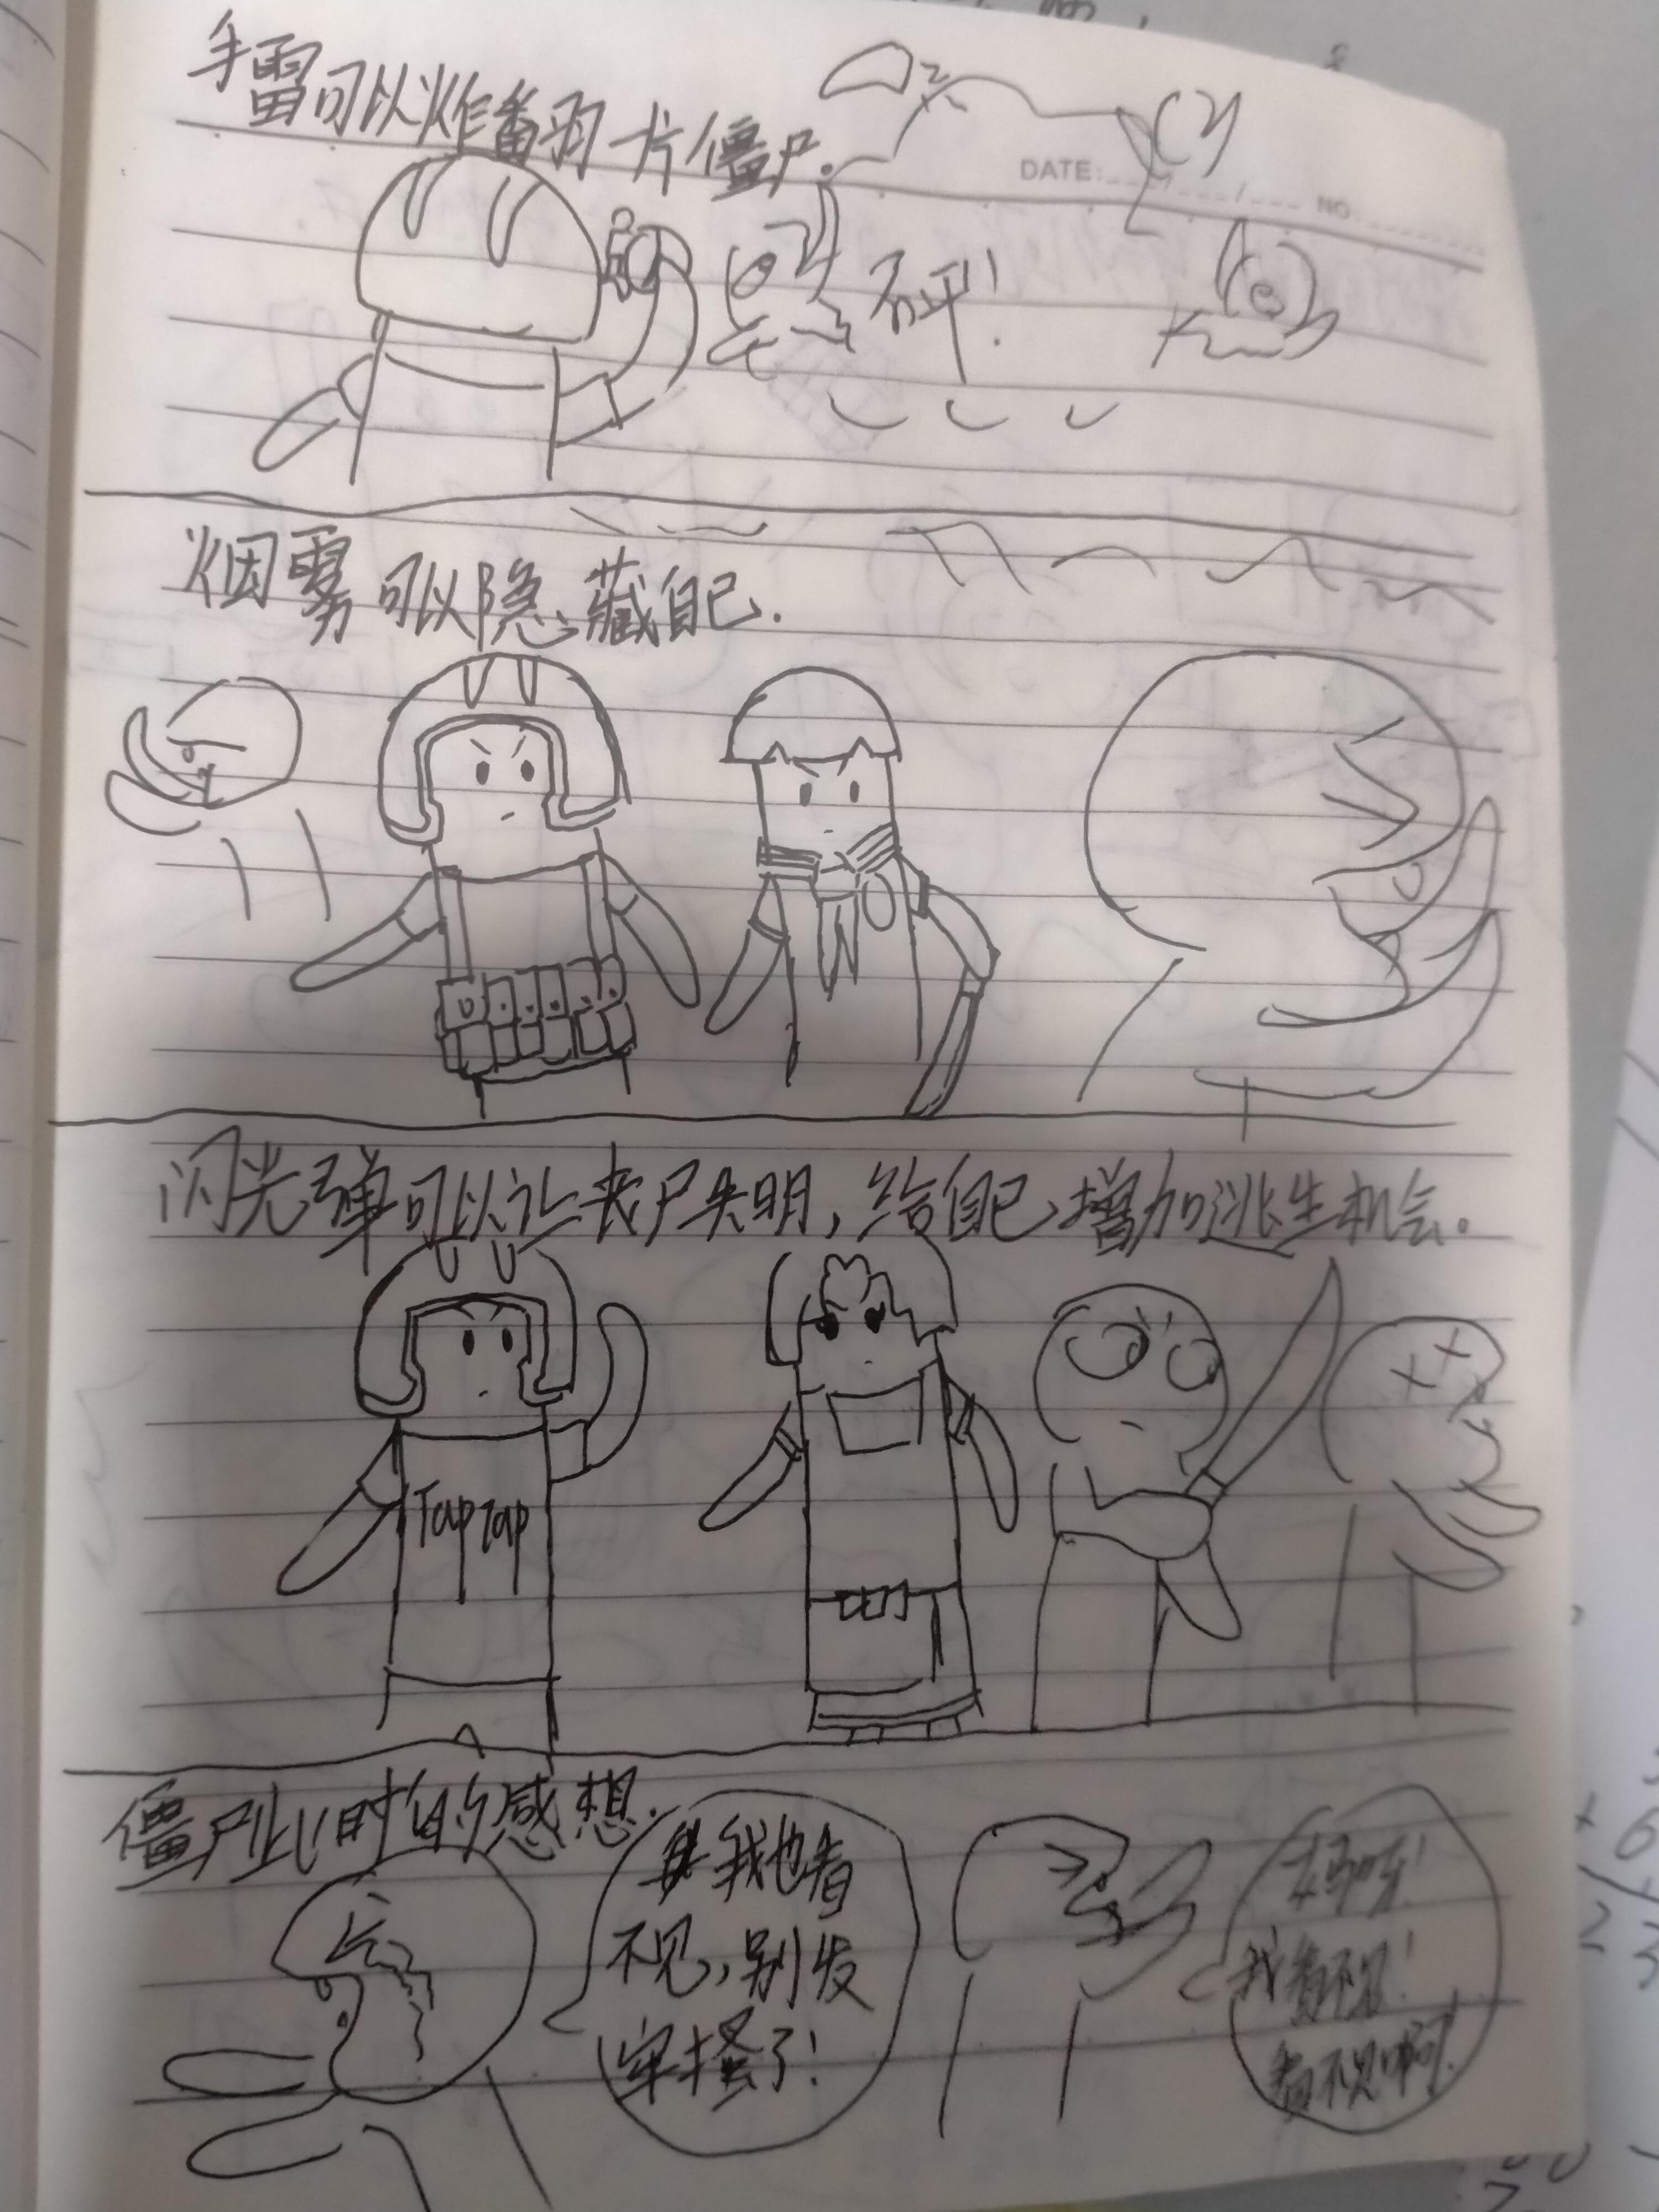 手雷可以炸翻一片僵尸.
DATE: / / NO.
砰!
烟雾可以隐藏自己.
闪光弹可以让丧尸失明,给自己增加逃生机会。
Tap Tap
僵尸此时的感想.
我也看
不见,别发
牢搔了!
妈呀!
我看不见!
看不见啊!